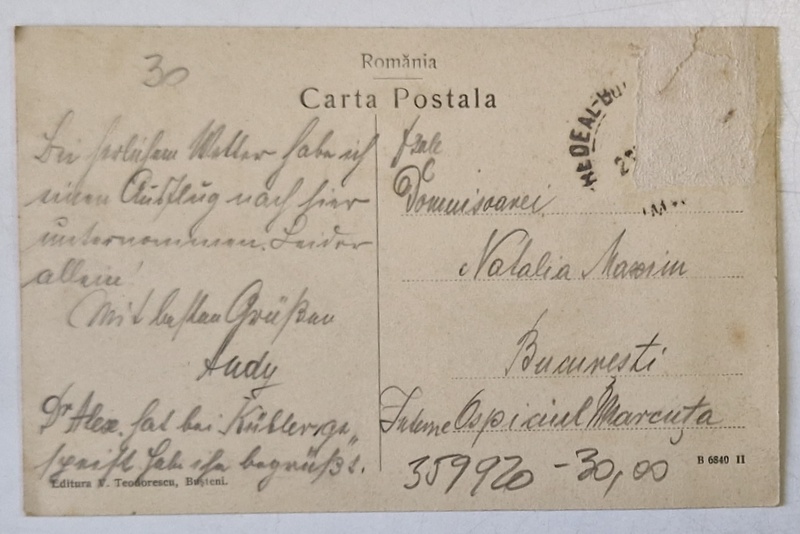 30
România
Carta Postala
Bei herlichem Wetter habe ich
einen Ausflug nach hier
unternommen. Leider
allein!
Mit besten Grüßen
Andy
Dr Alex. hat bei Kübler ge„
speist habe ihn begrüßt.
Editura V. Teodorescu, Bușteni.
PREDEAL-BU
Domnisoarei
Natalia Maxim
București
Interne Ospiciul Marcuța
359920 -30,00
B 6840 II